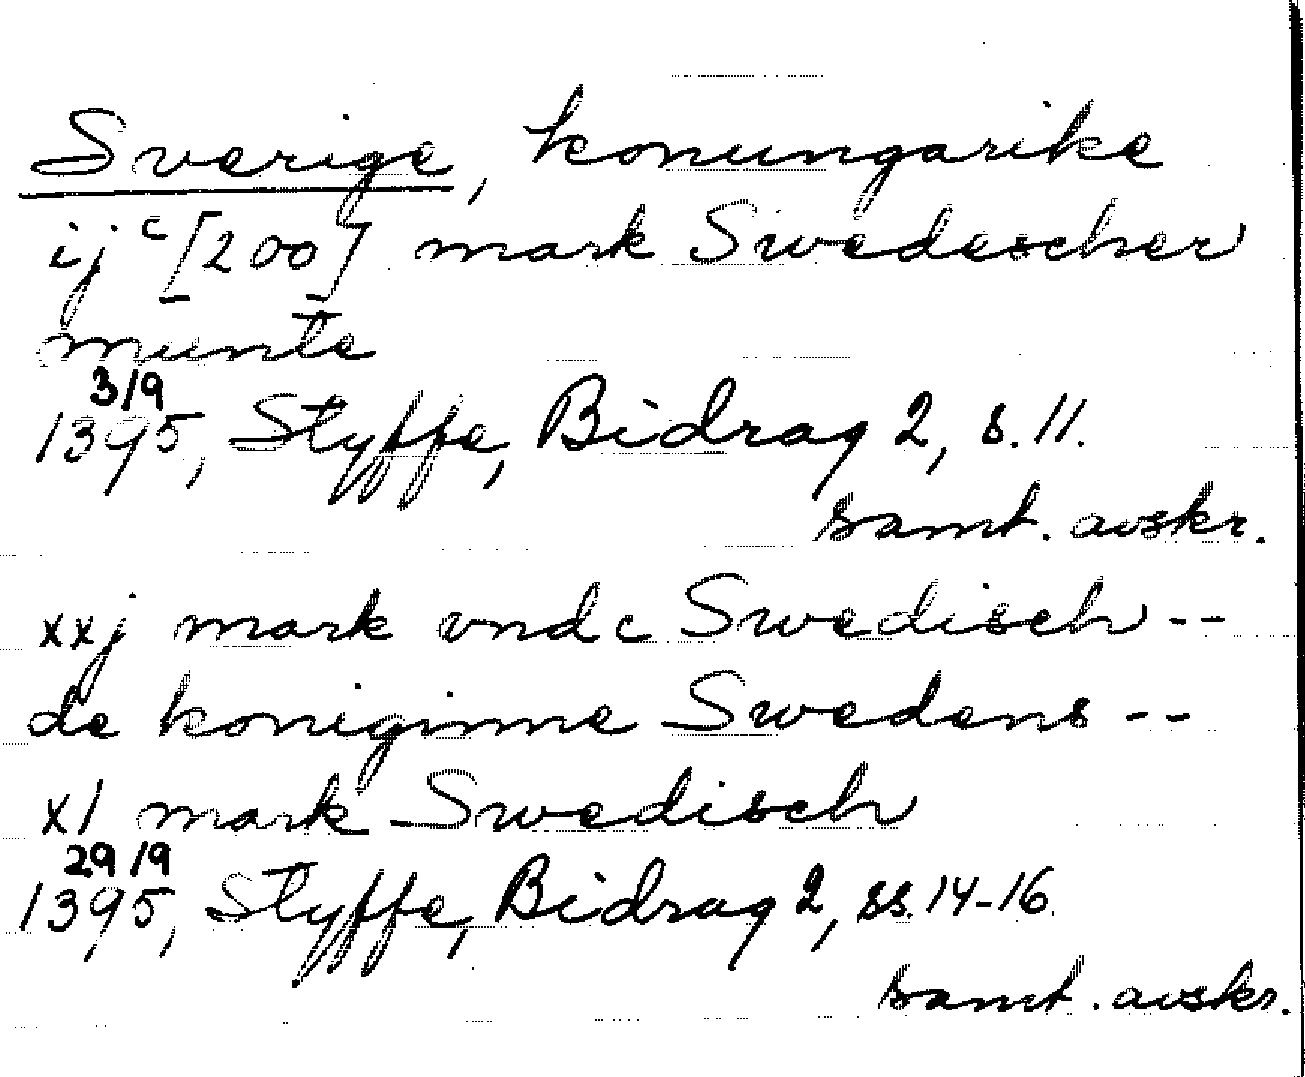 Sverige, konungarike
ij c [200] mark Swedescher
munte
3/9
1395, Styffe, Bidrag 2, s. 11.
samt. avskr.
xxj mark vnde Swedisch --
de koniginne Swedens --
xl mark Swedisch
29/9
1395, Styffe, Bidrag 2, ss. 14-16.
samt. avskr.